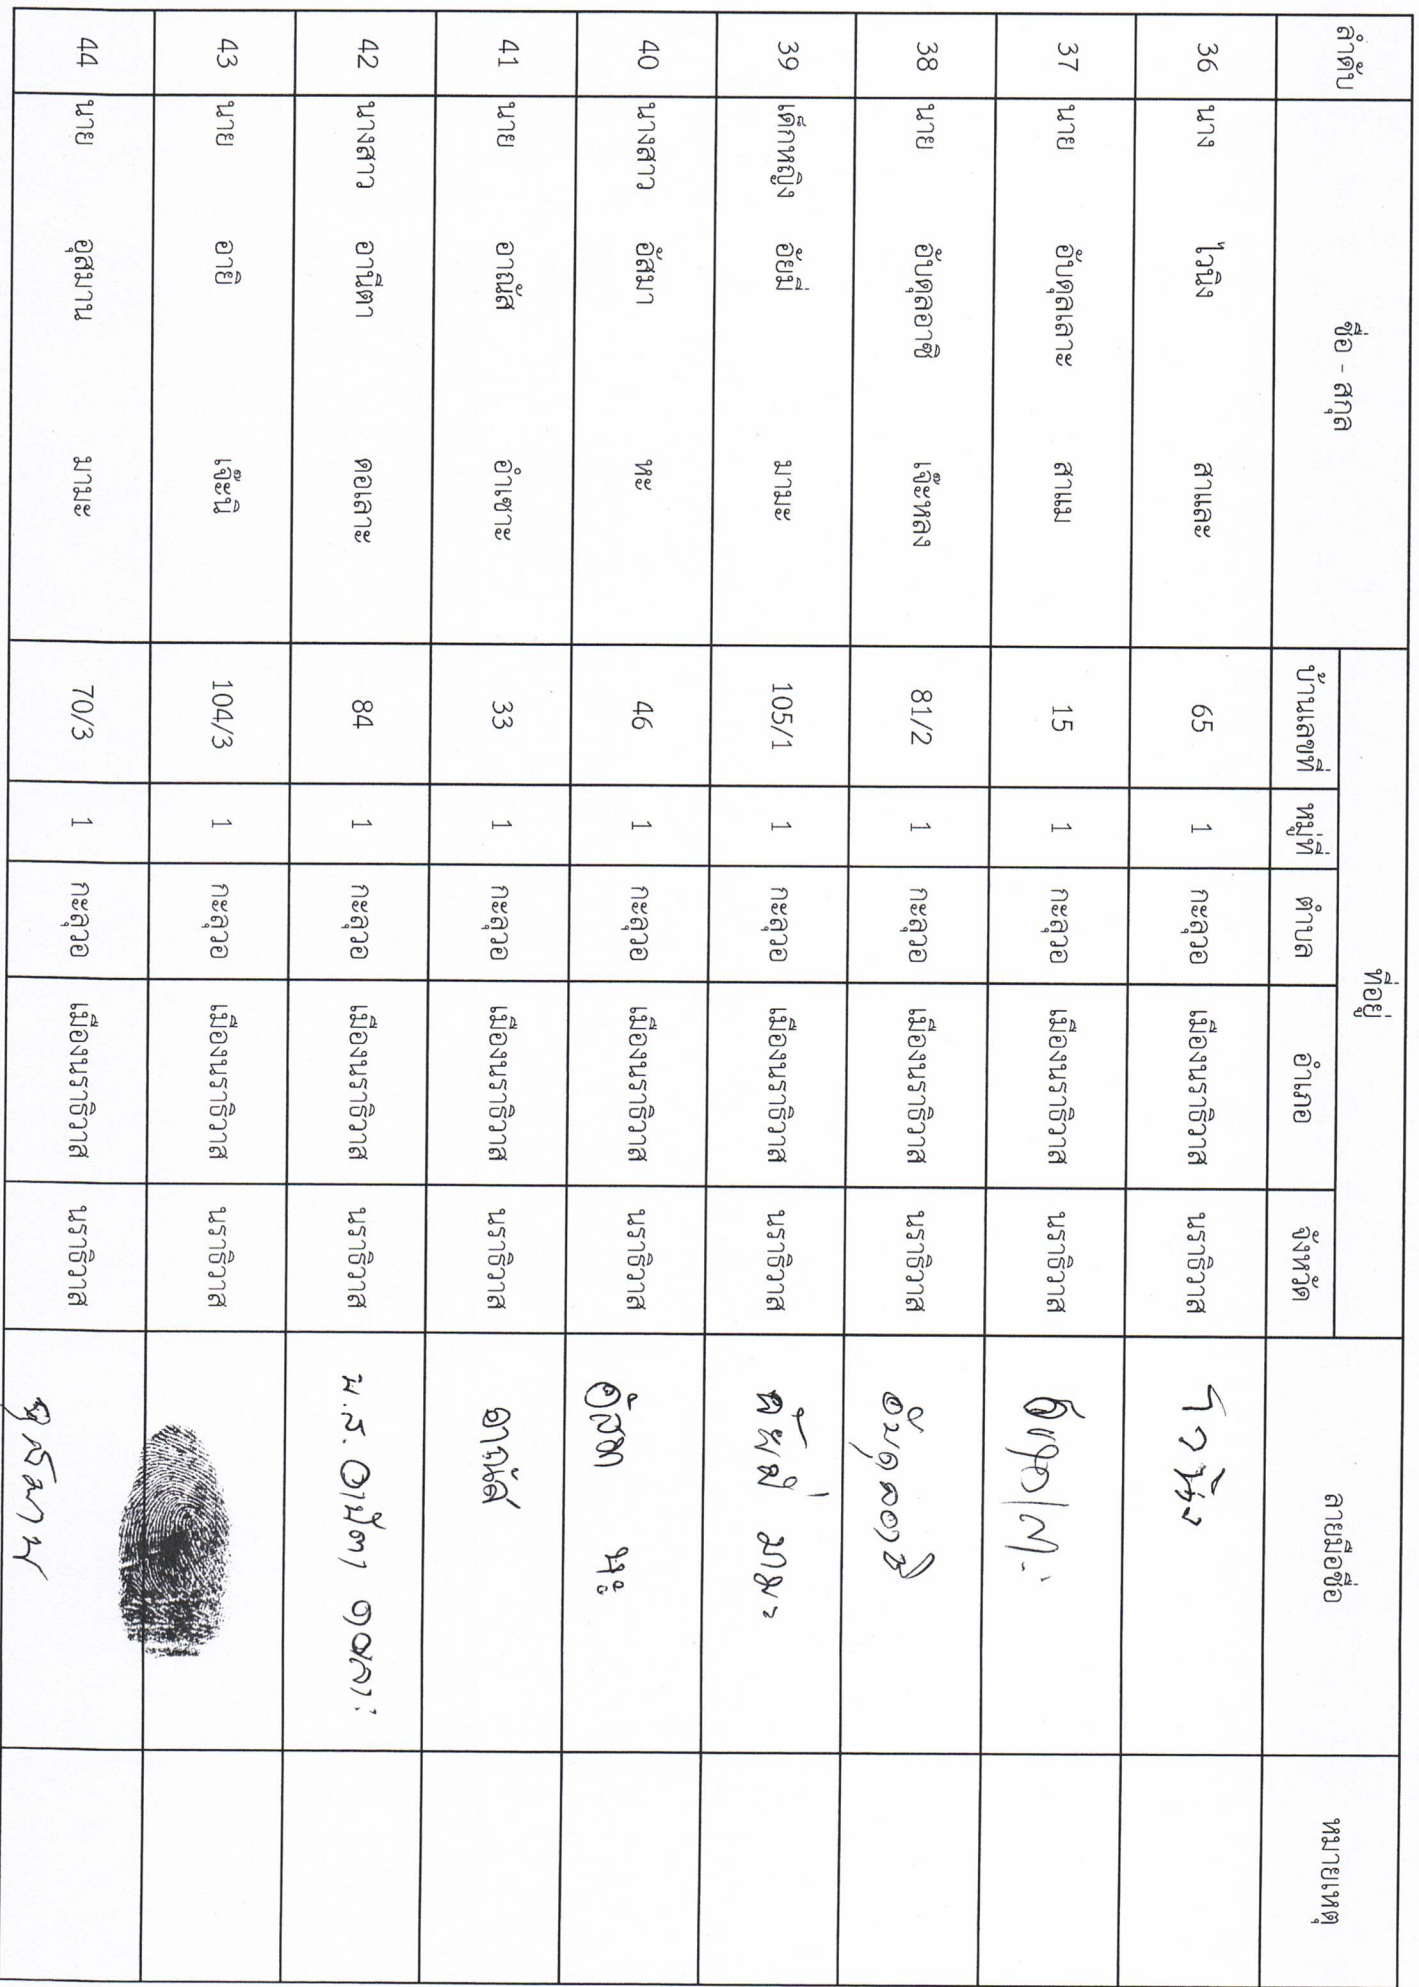 ลำดับ ชื่อ - สกุล ที่อยู่ ลายมือชื่อ หมายเหตุ
บ้านเลขที่ หมู่ที่ ตำบล อำเภอ จังหวัด
36 นาง ไวนิง สาและ 65 1 กะลุวอ เมืองนราธิวาส นราธิวาส ไวนิง
37 นาย อับดุลเลาะ สาแม 15 1 กะลุวอ เมืองนราธิวาส นราธิวาส
38 นาย อับดุลอาซิ เจ๊ะหลง 81/2 1 กะลุวอ เมืองนราธิวาส นราธิวาส อับดุลอาซิ
39 เด็กหญิง อัยมี่ มามะ 105/1 1 กะลุวอ เมืองนราธิวาส นราธิวาส อัยมี่ มามะ
40 นางสาว อัสมา หะ 46 1 กะลุวอ เมืองนราธิวาส นราธิวาส อัสมา หะ
41 นาย อาณัส อำเซาะ 33 1 กะลุวอ เมืองนราธิวาส นราธิวาส อาณัส
42 นางสาว อานีตา ดอเลาะ 84 1 กะลุวอ เมืองนราธิวาส นราธิวาส น.ส. อานีตา ดอเลาะ
43 นาย อายิ เจ๊ะนิ 104/3 1 กะลุวอ เมืองนราธิวาส นราธิวาส
44 นาย อุสมาน มามะ 70/3 1 กะลุวอ เมืองนราธิวาส นราธิวาส อุสมาน